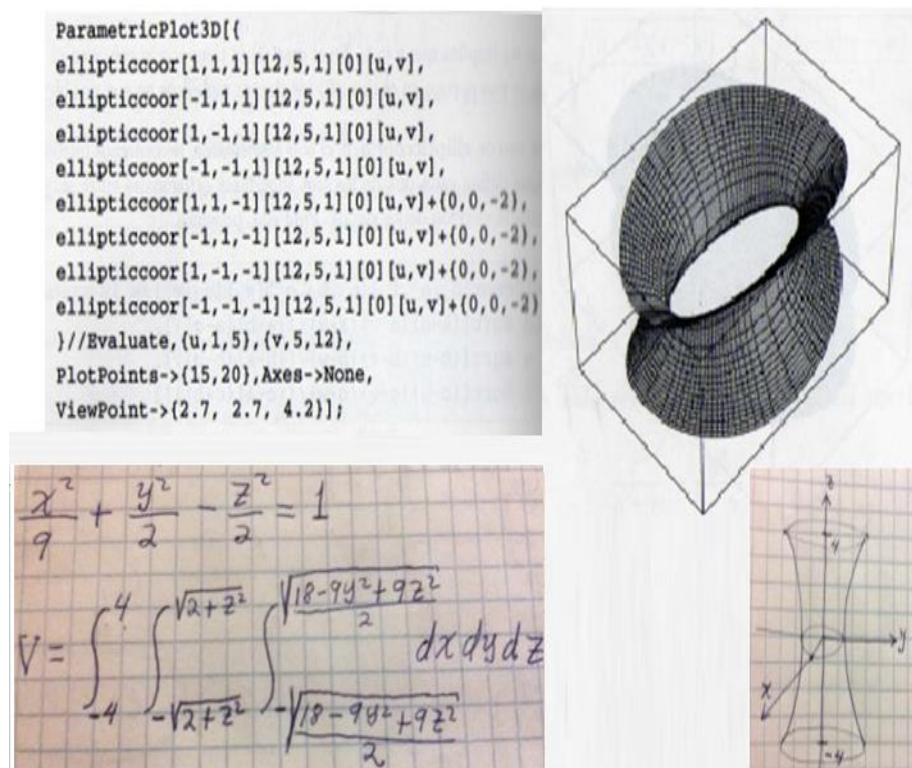 ParametricPlot3D[{
ellipticcoor[1,1,1][12,5,1][0][u,v],
ellipticcoor[-1,1,1][12,5,1][0][u,v],
ellipticcoor[1,-1,1][12,5,1][0][u,v],
ellipticcoor[-1,-1,1][12,5,1][0][u,v],
ellipticcoor[1,1,-1][12,5,1][0][u,v]+{0,0,-2},
ellipticcoor[-1,1,-1][12,5,1][0][u,v]+{0,0,-2},
ellipticcoor[1,-1,-1][12,5,1][0][u,v]+{0,0,-2},
ellipticcoor[-1,-1,-1][12,5,1][0][u,v]+{0,0,-2}
}//Evaluate,{u,1,5},{v,5,12},
PlotPoints->{15,20},Axes->None,
ViewPoint->{2.7, 2.7, 4.2}];
x²/9 + y²/2 - z²/2 = 1
V = ∫_{-4}^{4} ∫_{-√(2+z²)}^{√(2+z²)} ∫_{-√((18-9y²+9z²)/2)}^{√((18-9y²+9z²)/2)} dx dy dz
z
4
y
x
-4